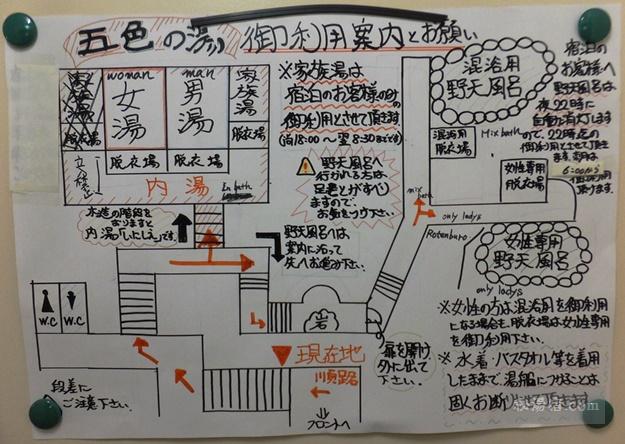 五色の湯 御利用案内とお願い
woman
女湯
man
男湯
家族湯
脱衣場
脱衣場
脱衣場
脱衣場
内湯
In bath
※家族湯は
宿泊のお客様のみの
御利用とさせて頂きます
野天風呂へ
行かれる方は
足元とがすべり
ますので、
お気をつけ下さい。
混浴用
野天風呂
混浴用
脱衣場
Mix bath
女性専用
脱衣場
mix bath
only ladys
Rotenburo
女性専用
野天風呂
only ladys
宿泊の
お客様へ
野天風呂は
夜22時に
自動消灯します
ので、22時迄の
御利用とさせて頂き
ます。
6:00から
頂けます。
木造の階段を
おりますと
内湯
です。
野天風呂へは、
案内に沿って
先へお進み下さい。
W.C
W.C
岩
現在地
川魚路名
フロントへ
扉を開け
外に出て
下さい。
段差に
ご注意下さい。
※女性の方は混浴用を御利用
になる場合も、脱衣場は女性専用
を御利用下さい。
※水着・バスタオル等を着用
したままで、湯船につけることは
固くお断り
秘湯宿.com